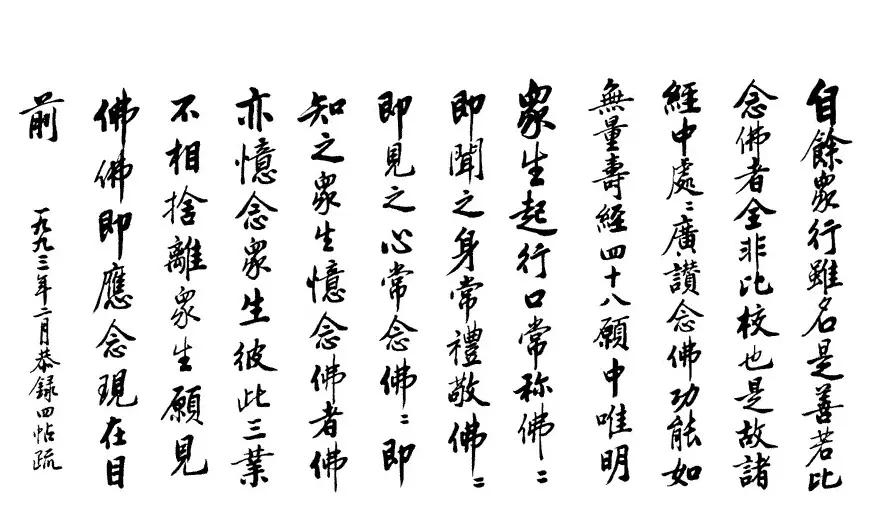 自餘眾行雖名是善若比
念佛者全非比校也是故諸
經中處〻廣讃念佛功能如
無量壽經四十八願中唯明
眾生起行口常称佛〻
即聞之身常禮敬佛〻
即見之心常念佛〻即
知之眾生憶念佛者佛
亦憶念眾生彼此三業
不相捨離眾生願見
佛佛即應念現在目
前
一九九三年二月恭録四帖疏